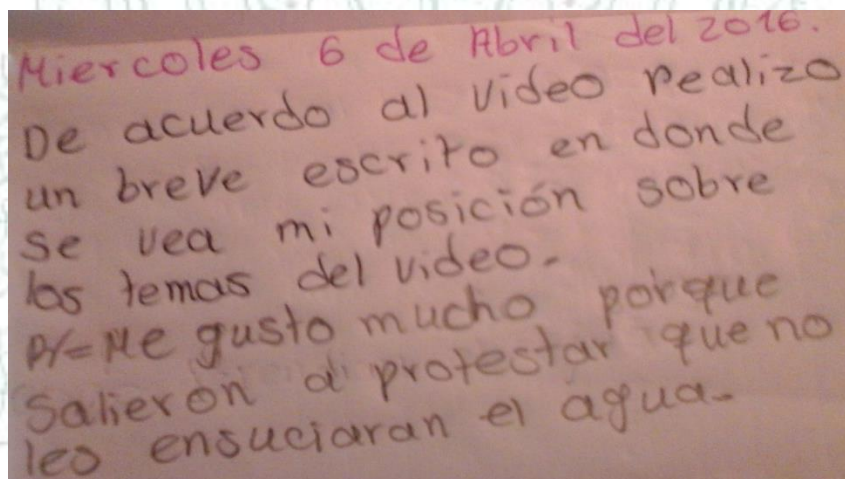 Miercoles 6 de Abril del 2016.
De acuerdo al video realizo
un breve escrito en donde
se vea mi posición sobre
los temas del video.
R/= Me gusto mucho porque
salieron a protestar que no
les ensuciaran el agua.